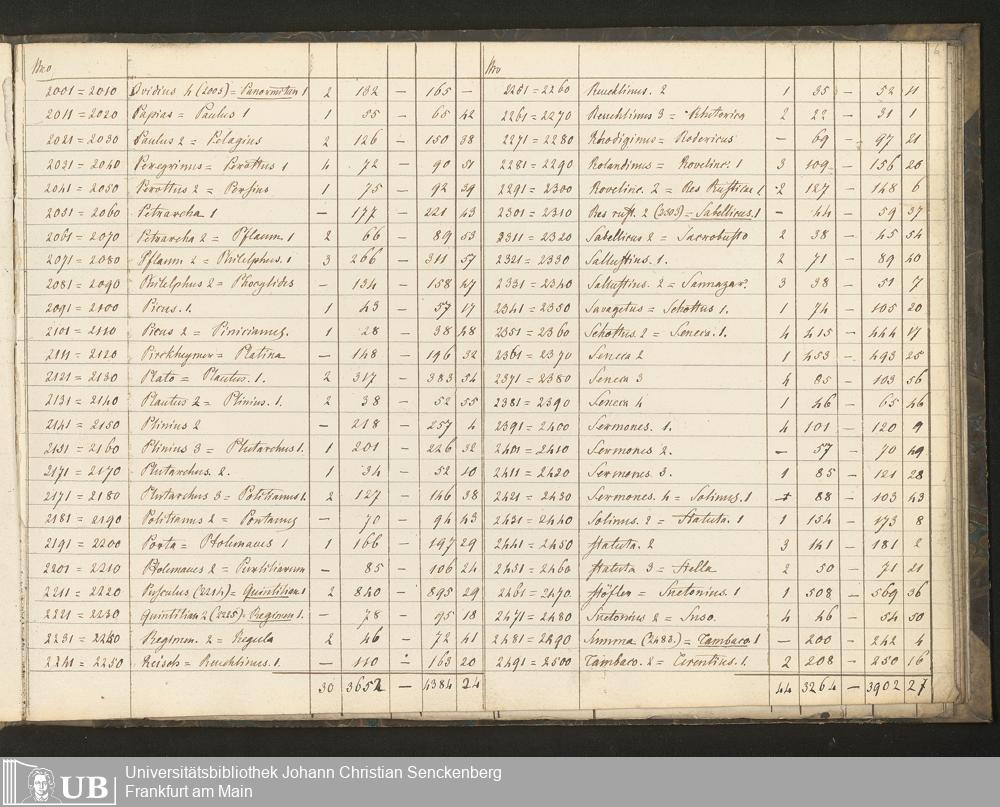 Nro
2001 = 2010 Ovidius 4 (2005) = Panormitan 1 2 132 – 165 –
2011 = 2020 Papias = Paulus 1 1 55 – 65 42
2021 = 2030 Paulus 2 = Pelagius 2 126 – 150 38
2031 = 2040 Peregrinus = Perottus 1 4 72 – 90 51
2041 = 2050 Perottus 2 = Persius 1 75 – 92 39
2051 = 2060 Petrarcha 1 – 177 – 221 43
2061 = 2070 Petrarcha 2 = Pflaum. 1 2 66 – 89 53
2071 = 2080 Pflaum 2 = Philelphus. 1 3 266 – 311 57
2081 = 2090 Philelphus 2 = Phocylides – 134 – 158 47
2091 = 2100 Picus. 1. 1 43 – 57 17
2101 = 2110 Picus 2 = Pinicianus. 1 28 – 38 48
2111 = 2120 Pirckheymer = Platina – 148 – 196 32
2121 = 2130 Plato = Plautus. 1. 2 317 – 383 54
2131 = 2140 Plautus 2 = Plinius. 1. 2 38 – 52 55
2141 = 2150 Plinius 2 – 218 – 257 4
2151 = 2160 Plinius 3 = Plutarchus 1. 1 201 – 226 32
2171 = 2170 Plutarchus. 2. 1 34 – 52 10
2171 = 2180 Plutarchus 3 = Politianus 1. 2 127 – 146 38
2181 = 2190 Politianus 2 = Pontanus – 70 – 94 43
2191 = 2200 Porta = Ptolemaeus 1 1 166 – 197 29
2201 = 2210 Ptolemaeus 2 = – 85 – 106 24
2211 = 2220 Pusculus (2214) = Quintilian 1 2 840 – 895 29
2221 = 2230 Quintilian 2 (2225) = Regimen 1. – 78 – 95 18
2231 = 2240 Regimen. 2 = Regula 2 46 – 72 41
2241 = 2250 Reisch = Reuchlinus. 1. – 110 – 163 20
30 3652 – 4384 24
6
Nro
2251 = 2260 Reuchlinus. 2 1 35 – 52 11
2261 = 2270 Reuchlinus 3 = Rhetorica 2 22 – 31 1
2271 = 2280 Rhodiginus = Rodericus – 69 – 97 21
2281 = 2290 Rolandinus = Rovelinc. 1 3 109 – 156 20
2291 = 2300 Rovelinc. 2 = Res Rusticae 1 2 127 – 148 6
2301 = 2310 Res rust. 2 (2303) = Sabellicus. 1 – 44 – 59 37
2311 = 2320 Sabellicus 2 = Sacrobusto 2 38 – 45 54
2321 = 2330 Sallustius. 1. 2 71 – 89 40
2331 = 2340 Sallustius. 2 = Sannazar. 3 38 – 51 7
2341 = 2350 Savagetus = Schottus 1. 1 74 – 105 20
2351 = 2360 Schottus. 2 = Seneca. 1. 4 415 – 444 17
2361 = 2370 Seneca 2 1 453 – 493 25
2371 = 2380 Seneca 3 4 85 – 103 56
2381 = 2390 Seneca 4 1 46 – 65 46
2391 = 2400 Sermones. 1. 4 101 – 120 9
2401 = 2410 Sermones 2. – 57 – 70 49
2411 = 2420 Sermones. 3. 1 85 – 121 28
2421 = 2430 Sermones. 4 = Solinus. 1 – 88 – 103 43
2431 = 2440 Solinus. 2 = Statuta. 1 1 154 – 173 8
2441 = 2450 Statuta. 2 3 141 – 181 2
2451 = 2460 Statuta 3 = Stella 2 50 – 71 21
2461 = 2470. Stöfler = Suetonius. 1 1 508 – 569 36
2471 = 2480 Suetonius 2 = Suso. 4 46 – 54 50
2481 = 2490 Summa (2483.) = Tambaco. 1 – 200 – 242 4
2491 = 2500 Tambaco. 2 = Terentius. 1. 2 208 – 250 16
44 3264 – 3902 27
UB
Universitätsbibliothek Johann Christian Senckenberg
Frankfurt am Main